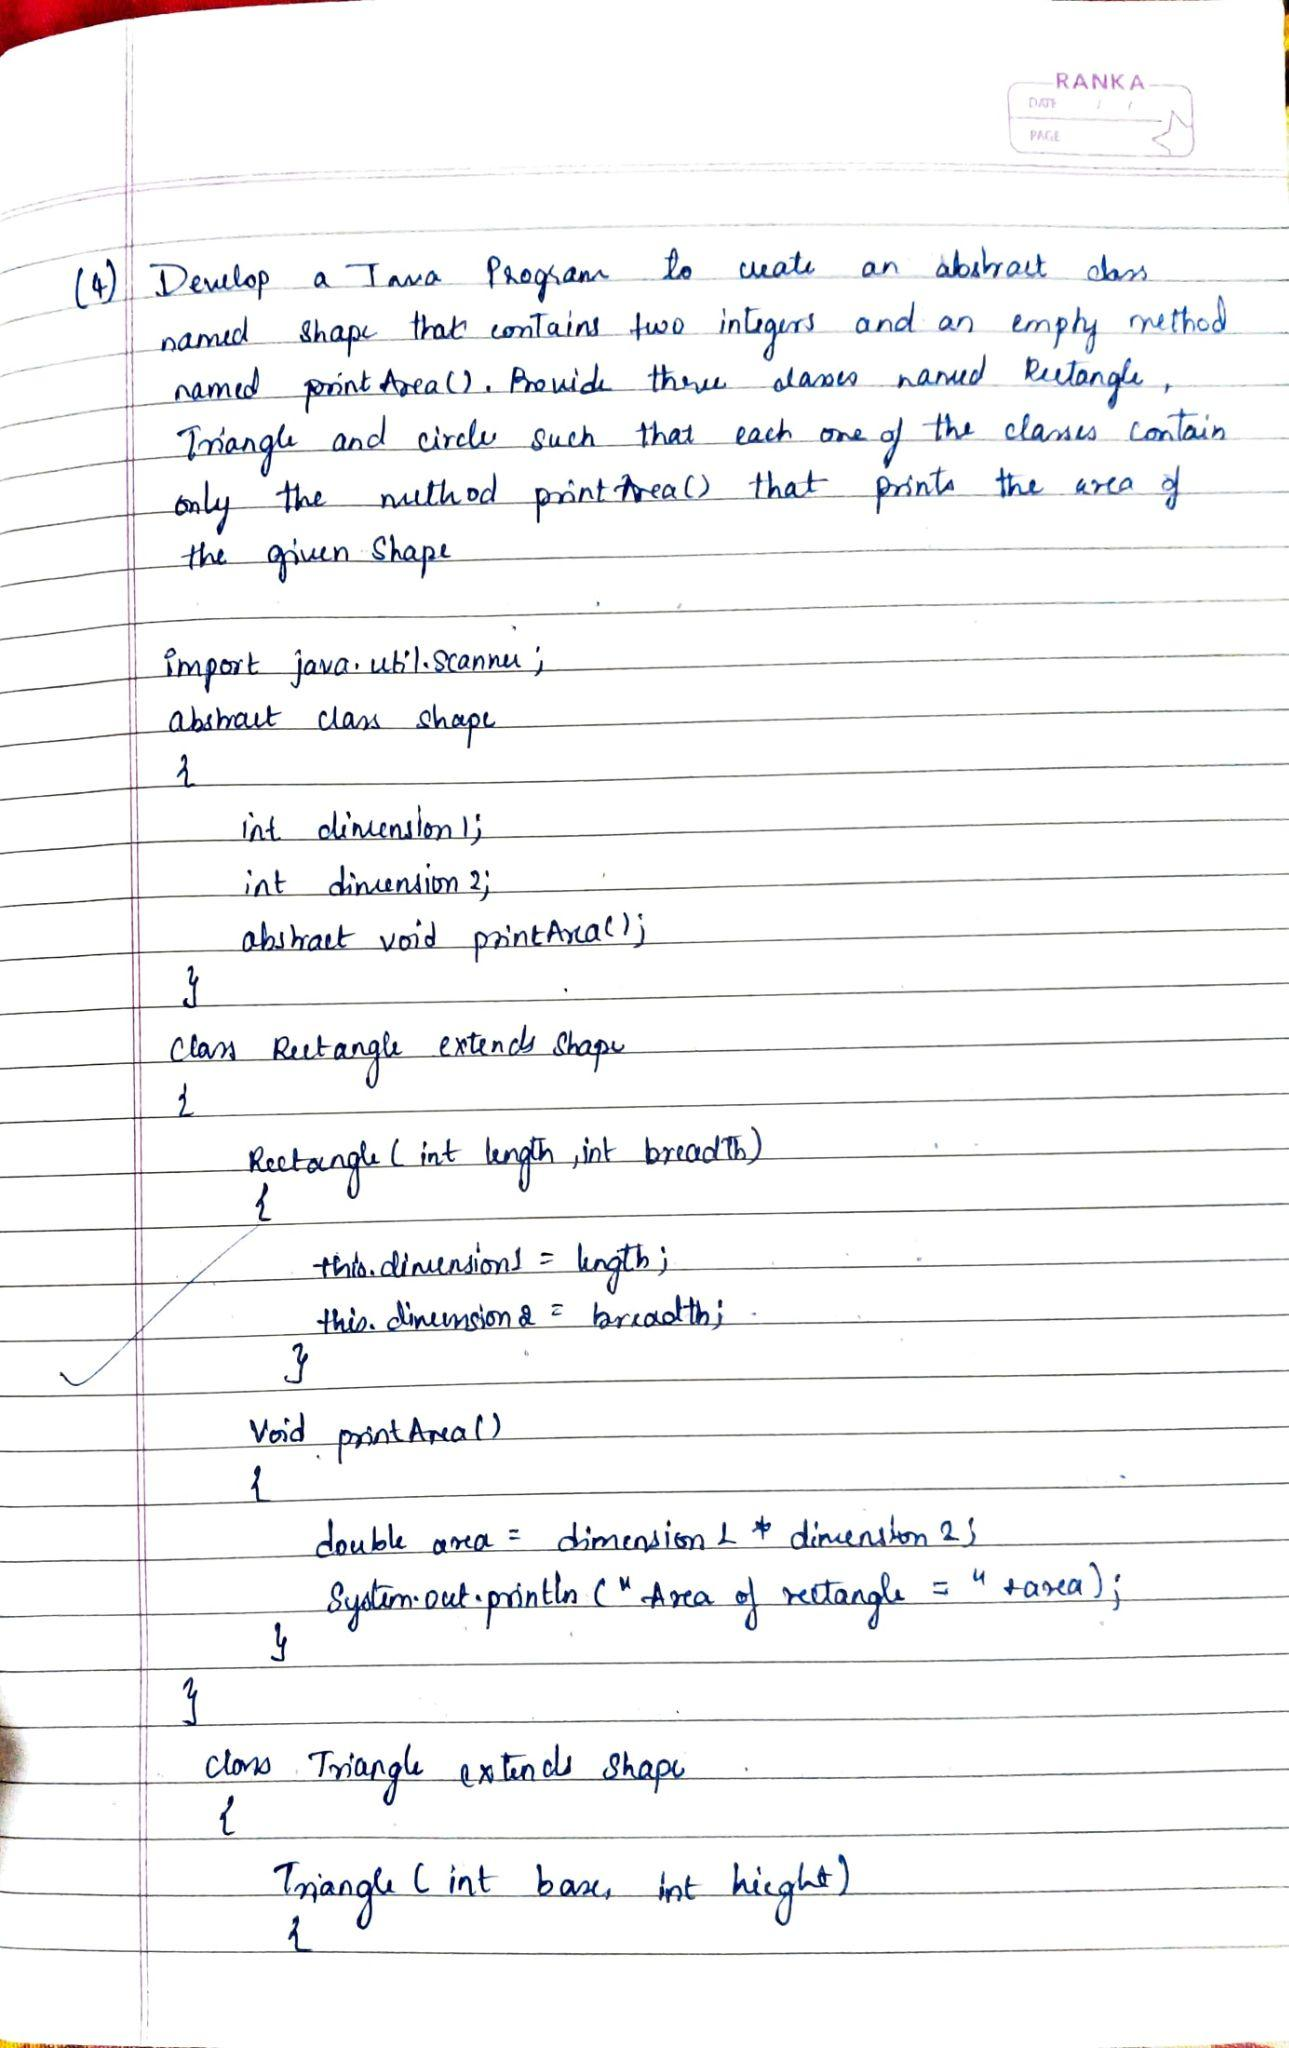 RANKA
DATE / /
PAGE
(4) Develop a Java Program to create an abstract class
named Shape that contains two integers and an empty method
named printArea(). Provide three classes named Rectangle,
Triangle and circle such that each one of the classes contain
only the method printArea() that prints the area of
the given Shape
import java.util.Scanner;
abstract class shape
{
int dimension1;
int dimension2;
abstract void printArea();
}
Class Rectangle extends Shape
{
Rectangle ( int length , int breadth)
{
this.dimension1 = length;
this.dimension2 = breadth;
}
Void printArea()
{
double area = dimension1 * dimension2;
System.out.println (" Area of rectangle = " +area);
}
}
class Triangle extends Shape
{
Triangle ( int base, int hieght)
{